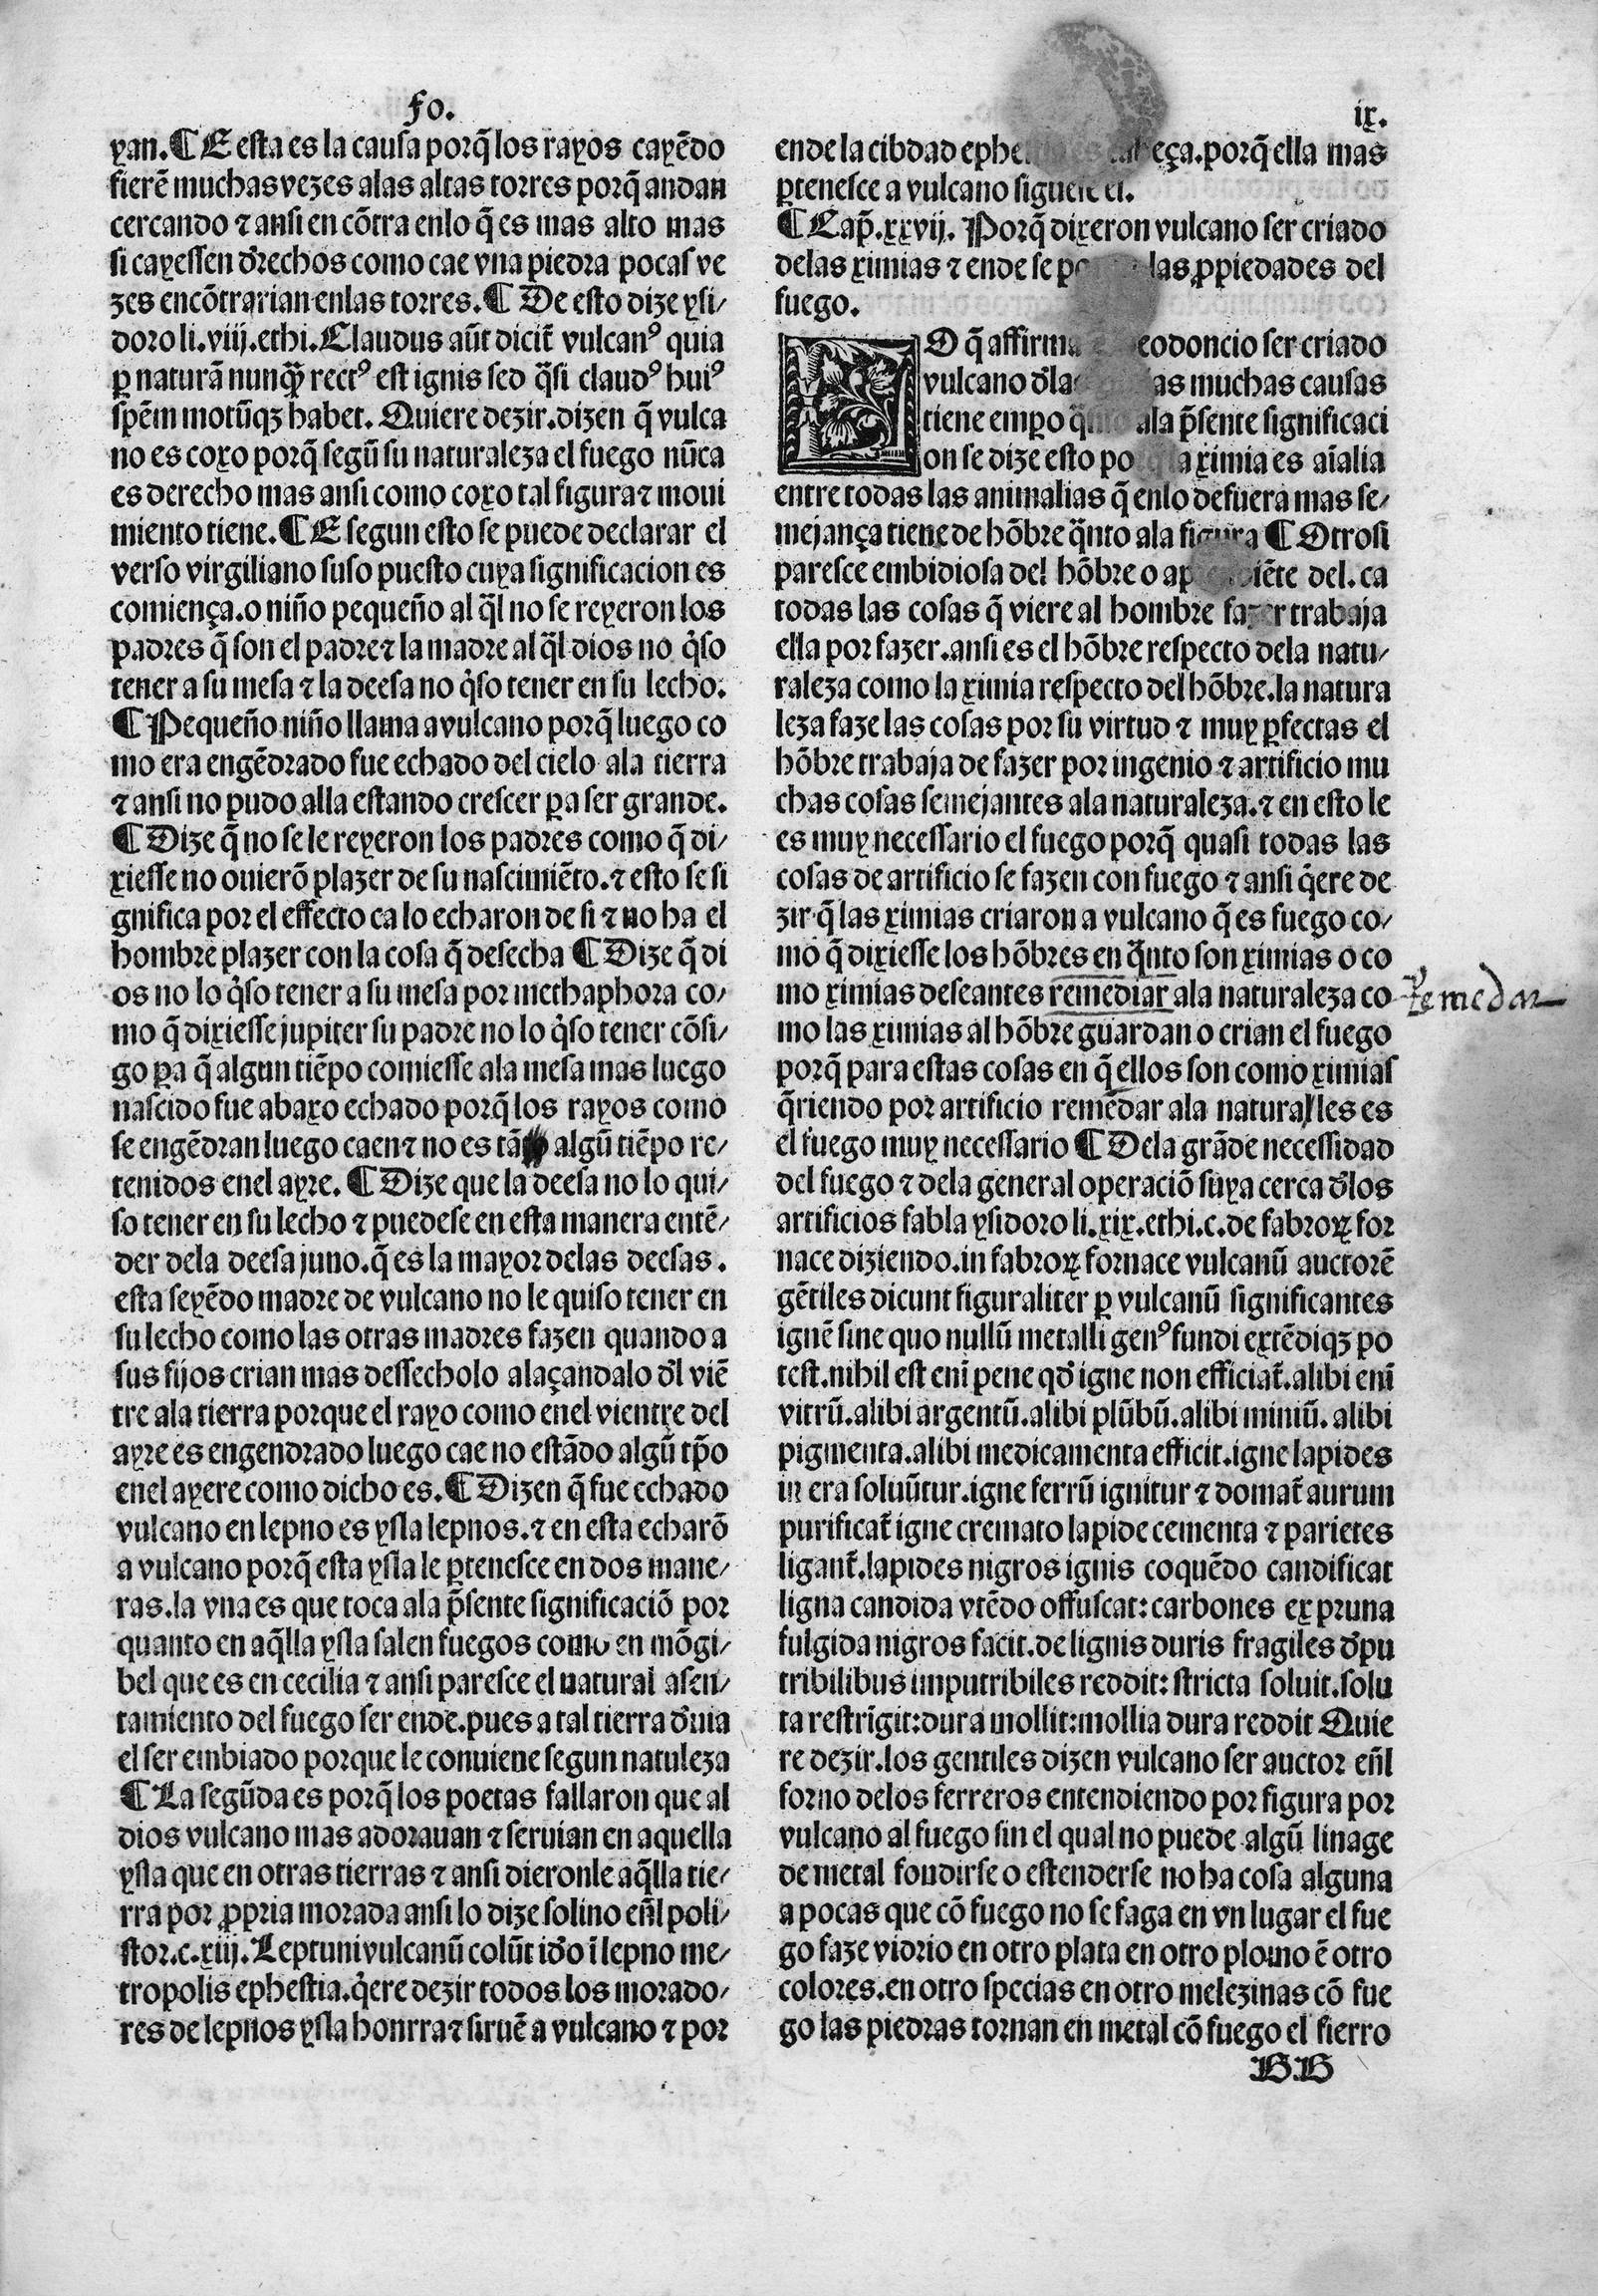 fo.
ix.
yan.¶E esta es la causa porq̃ los rayos cayẽdo
fierẽ muchas vezes alas altas torres porq̃ andan
cercando ⁊ ansi en cõtra enlo q̃ es mas alto mas
si cayessen d̃rechos como cae vna piedra pocas ve
zes encõtrarian enlas torres.¶De esto dize ysi/
doro li.viij.ethi.Claudus aũt dicit̃ vulcanꝰ quia
ꝑ naturã nunq̃ꝫ rectꝰ est ignis sed q̃si claudꝰ huiꝰ
spẽm motũqꝫ habet. Quiere dezir.dizen q̃ vulca
no es coxo porq̃ segũ su naturaleza el fuego nũca
es derecho mas ansi como coxo tal figura ⁊ moui
miento tiene.¶E segun esto se puede declarar el
verso virgiliano suso puesto cuya significacion es
comiença.o niño pequeño al q̃l no se reyeron los
padres q̃ son el padre ⁊ la madre al q̃l dios no q̃so
tener a su mesa ⁊ la deesa no q̃so tener en su lecho.
¶Pequeño niño llama a vulcano porq̃ luego co
mo era engẽdrado fue echado del cielo ala tierra
⁊ ansi no pudo alla estando crescer ꝑa ser grande.
¶Dize q̃ no se le reyeron los padres como q̃ di/
xiesse no ouierõ plazer de su nascimiẽto.⁊ esto se si
gnifica por el effecto ca lo echaron de si ⁊ no ha el
hombre plazer con la cosa q̃ desecha ¶Dize q̃ di
os no lo q̃so tener a su mesa por methaphora co/
mo q̃ dixiesse jupiter su padre no lo q̃so tener cõsi/
go ꝑa q̃ algun tiẽpo comiesse ala mesa mas luego
nascido fue abaxo echado porq̃ los rayos como
se engẽdran luego caen ⁊ no es tã algũ tiẽpo re/
tenidos enel ayre. ¶Dize que la deesa no lo qui/
so tener en su lecho ⁊ puedese en esta manera entẽ/
der dela deesa juno.q̃ es la mayor delas deesas.
esta seyẽdo madre de vulcano no le quiso tener en
su lecho como las otras madres fazen quando a
sus fijos crian mas dessecholo alaçandalo d̃l viẽ
tre ala tierra porque el rayo como enel vientre del
ayre es engendrado luego cae no estãdo algũ tp̃o
enel ayere como dicho es.¶Dizen q̃ fue echado
vulcano en lepno es ysla lepnos.⁊ en esta echarõ
a vulcano porq̃ esta ysla le ꝑtenesce en dos mane/
ras.la vna es que toca ala p̃sente significaciõ por
quanto en aq̃lla ysla salen fuegos como en mõgi/
bel que es en cecilia ⁊ ansi paresce el natural asen/
tamiento del fuego ser ende.pues a tal tierra d̃uia
el ser embiado porque le conuiene segun natuleza
¶La segũda es porq̃ los poetas fallaron que al
dios vulcano mas adorauan ⁊ seruian en aquella
ysla que en otras tierras ⁊ ansi dieronle aq̃lla tie/
rra por ꝓpria morada ansi lo dize solino eñl poli/
stor.c.xiij.Leptuni vulcanũ colũt id̃o ĩ lepno me/
tropolis ephestia.q̃ere dezir todos los morado/
res de lepnos ysla honrra ⁊ siruẽ a vulcano ⁊ por
ende la cibdad eça.porq̃ ella mas
ꝑtenesce a vulcano siguese el.
¶Cap̃.xxvij. Porq̃ dixeron vulcano ser criado
delas ximias ⁊ ende se las ꝓpiedades del
fuego.
LO q̃ affirma eodoncio ser criado
vulcano as muchas causas
tiene empo ala p̃sente significaci
on se dize esto a ximia es aĩalia
entre todas las animalias q̃ enlo defuera mas se/
mejança tiene de hõbre q̃nto ala figura ¶Otrosi
paresce embidiosa del hõbre o del.ca
todas las cosas q̃ viere al hombre fazer trabaja
ella por fazer.ansi es el hõbre respecto dela natu/
raleza como la ximia respecto del hõbre.la natura
leza faze las cosas por su virtud ⁊ muy ꝑfectas el
hõbre trabaja de fazer por ingenio ⁊ artificio mu
chas cosas semejantes ala naturaleza.⁊ en esto le
es muy necessario el fuego porq̃ quasi todas las
cosas de artificio se fazen con fuego ⁊ ansi q̃ere de
zir q̃ las ximias criaron a vulcano q̃ es fuego co/
mo q̃ dixiesse los hõbres en q̃nto son ximias o co
mo ximias deseantes remediar ala naturaleza co
Remedar
mo las ximias al hõbre guardan o crian el fuego
porq̃ para estas cosas en q̃ ellos son como ximias
q̃riendo por artificio remẽdar ala natura les es
el fuego muy necessario ¶Dela grãde necessidad
del fuego ⁊ dela general operaciõ suya cerca d̃los
artificios fabla ysidoro li.xix.ethi.c.de fabroꝝ for
nace diziendo.in fabroꝝ fornace vulcanũ auctorẽ
gẽtiles dicunt figuraliter ꝑ vulcanũ significantes
ignẽ sine quo nullũ metalli genꝰ fundi extẽdiqꝫ po
test.nihil est enĩ pene qd̃ igne non efficiat̃.alibi enĩ
vitrũ.alibi argentũ.alibi plũbũ.alibi miniũ. alibi
pigmenta.alibi medicamenta efficit.igne lapides
in era soluũtur.igne ferrũ ignitur ⁊ domat̃ aurum
purificat̃ igne cremato lapide cementa ⁊ parietes
ligant̃.lapides nigros ignis coquẽdo candificat
ligna candida vtẽdo offuscat: carbones ex pruna
fulgida nigros facit.de lignis duris fragiles d̃pu
tribilibus imputribiles reddit: stricta soluit.solu
ta restrĩgit:dura mollit:mollia dura reddit Quie
re dezir.los gentiles dizen vulcano ser auctor eñl
forno delos ferreros entendiendo por figura por
vulcano al fuego sin el qual no puede algũ linage
de metal foudirse o estenderse no ha cosa alguna
a pocas que cõ fuego no se faga en vn lugar el fue
go faze vidrio en otro plata en otro plomo ẽ otro
colores.en otro specias en otro melezinas cõ fue
go las piedras tornan en metal cõ fuego el fierro
BB